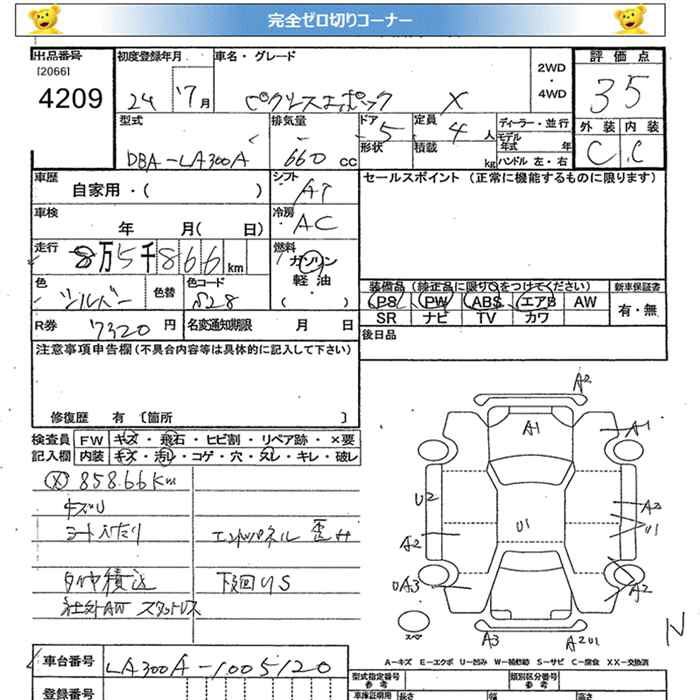 完全ゼロ切りコーナー
出品番号 初度登録年月 車名・グレード 2WD・4WD 評価点
[2066]
4209 24 7月 ピクシスエポック X 35
型式 排気量 ドア 5 定員 4人 ディーラー・並行 外装 内装
形状 積載 kg モデル年式 年
DBA-LA300A 660 cc ハンドル 左・右 C C
車歴 シフト セールスポイント (正常に機能するものに限ります)
自家用・( ) AT
車検 冷房
年 月( 日) AC
走行 燃料
8万5千866km ガソリン
軽油
色 色替 色コード ( ) 装備品(純正品に限り○をつけてください) 新車保証書
シルバー S28 PS PW ABS エアB AW 有・無
SR ナビ TV カワ
R券 7320円 名変通知期限 月 日 後日品
注意事項申告欄(不具合内容等は具体的に記入して下さい)
修復歴 有 〔箇所 〕
検査員 FW キズ・飛石・ヒビ割・リペア跡・×要
記入欄 内装 キズ・汚レ・コゲ・穴・スレ・キレ・破レ
(X) 85866km
キズU
シートヘタリ エンドパネル 歪み
タイヤ積込 下回りS
社外AW スタットレス
A2
A1 A1
U2 A2 U1
U1
A2
UA3 A2
スペア
A3 A2U1
N
A-キズ E-エクボ U-凹み W-補修跡 S-サビ C-腐食 XX-交換済
車台番号 LA300A-1005120
型式指定番号 類別区分番号
参考 参考
登録番号 長さ 幅 高さ